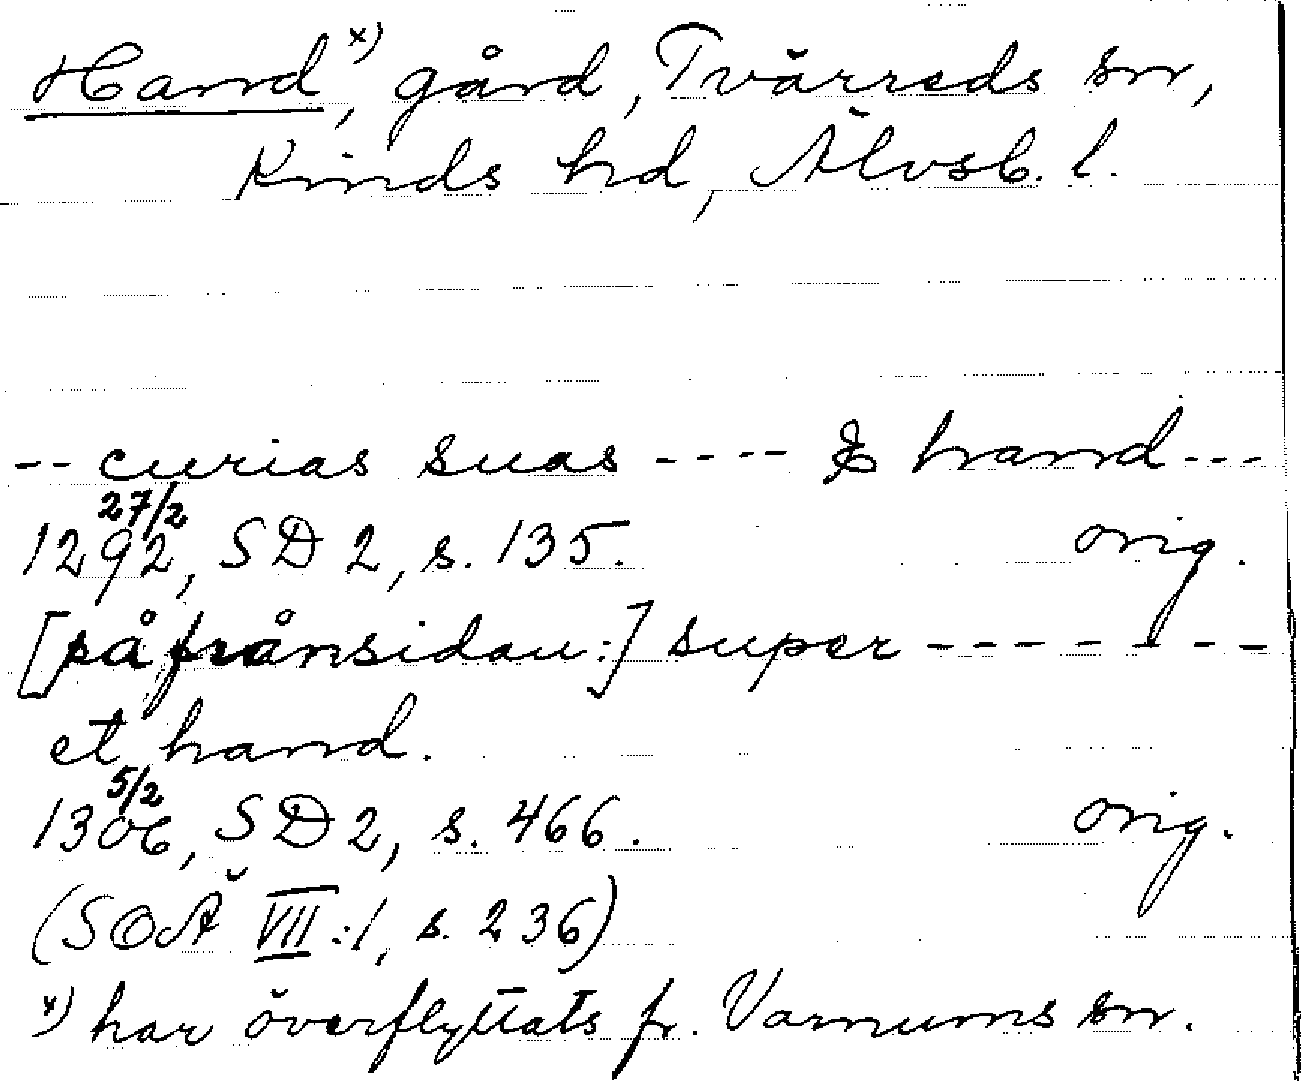 Hand x), gård, Tvärreds sn,
Kinds hd, Älvsb. l.
-- curias suas ---- & hand ---
27/2
1292, SD 2, s. 135. orig.
[på frånsidan:] super -------
et hand.
5/2
1306, SD 2, s. 466. orig.
(SOÄ VII:1, s. 236)
x) har överflyttats fr. Varnums sn.